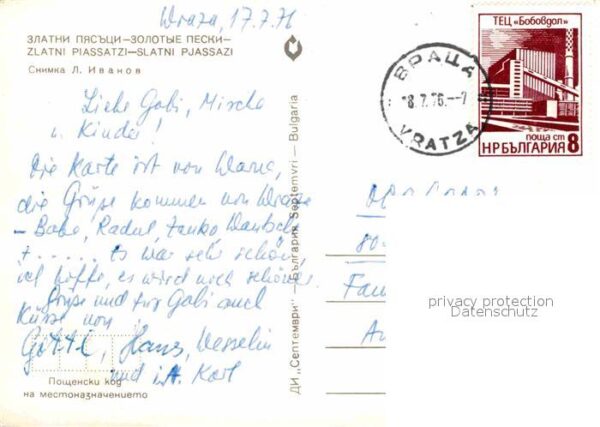 Wraza, 17.7.76
ЗЛАТНИ ПЯСЪЦИ—ЗОЛОТЫЕ ПЕСКИ—
ZLATNI PIASSATZI—SLATNI PJASSAZI
Снимка Л. Иванов
Liebe Gabi, Mischa
u. Kinder!
Die Karte ist von Warna,
die Grüße kommen von Wraza
– Baba, Radul, Zanko,
+ ..... Es war sehr schön
ich hoffe, es wird noch schöner.
Grüße und für Gabi auch
Küsse von
Götti, Hans, Wesselin
und i.A. Karl
Пощенски код
на местоназначението
ДИ „Септември" — България Septemvri — Bulgaria
ВРАЦА
18.7.76.—7
VRATZA
ТЕЦ „Бобовдол"
поща ст
НР БЪЛГАРИЯ 8
privacy protection
Datenschutz